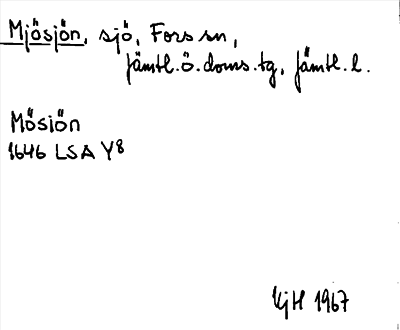 Mjösjön, sjö, Fors sn,
Jämtl.ö.doms.tg, Jämtl.l.
Mösiön
1646 LSA Y8
KjH 1967